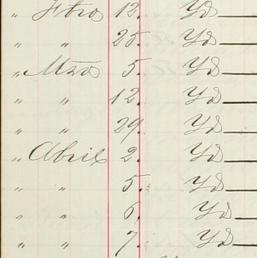 " Fbro 12. Yd
" " 25. Yd
" Mzo 5. Yd
" " 12. Yd
" " 29. Yd
" Abril 2. Yd
" " 5. Yd
" " 6, Yd
" " 7. Yd